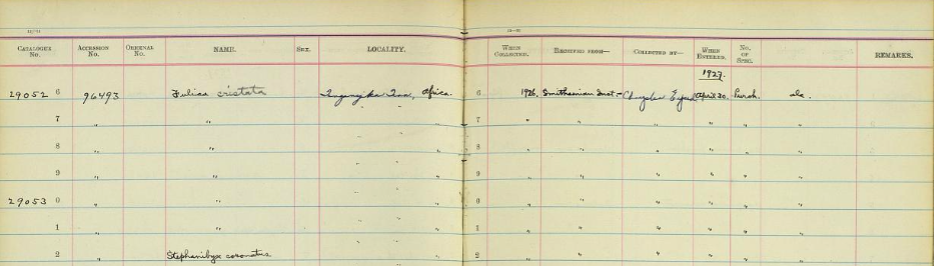 CATALOGUE No. ACCESSION No. ORIGINAL No. NAME. SEX. LOCALITY. WHEN COLLECTED. RECEIVED FROM— COLLECTED BY— WHEN ENTERED. No. OF SPEC. REMARKS.
1927.
29052 6 96493 Fulica cristata Tanganyika Terr., Africa. 6 1926. Smithsonian Inst.- Chrysler Exped April 20.
7 " " " " 7 " " " " " "
8 " " " " 8 " " " " " "
9 " " " " 9 " " " " " "
29053 0 " " " " 0 " " " " " "
1 " " " " 1 " " " " " "
2 " Stephanibyx coronatus " " 2 " " " " " "